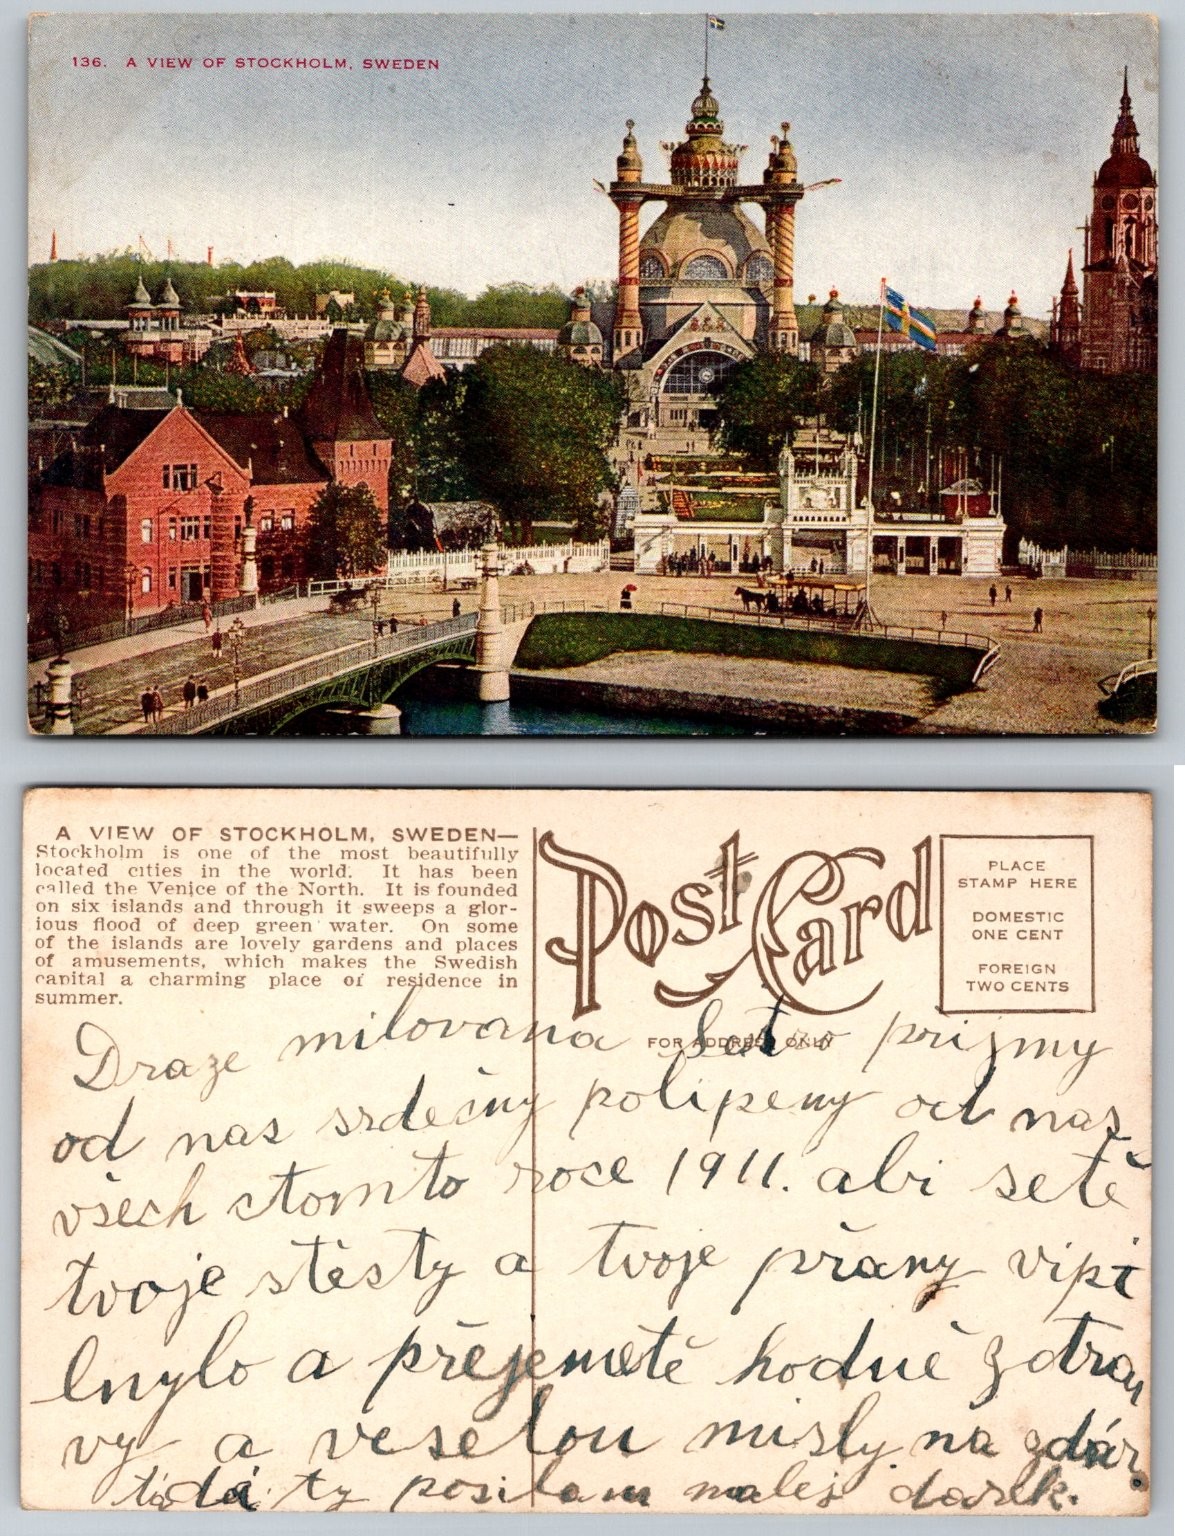 136. A VIEW OF STOCKHOLM, SWEDEN
A VIEW OF STOCKHOLM, SWEDEN—
Stockholm is one of the most beautifully
located cities in the world. It has been
called the Venice of the North. It is founded
on six islands and through it sweeps a glor-
ious flood of deep green water. On some
of the islands are lovely gardens and places
of amusements, which makes the Swedish
capital a charming place of residence in
summer.
Post Card
PLACE
STAMP HERE
DOMESTIC
ONE CENT
FOREIGN
TWO CENTS
FOR ADDRESS ONLY
Draze milovana prijmy
od nas srdečny polipeny od nas
všech vtomto roce 1911. abi setě
tvoje stěsty a tvoje přany vipi
lnylo a přejemetě hodně zdra
vy a veselou misly na zdar
tidá ty posilam malej darek.